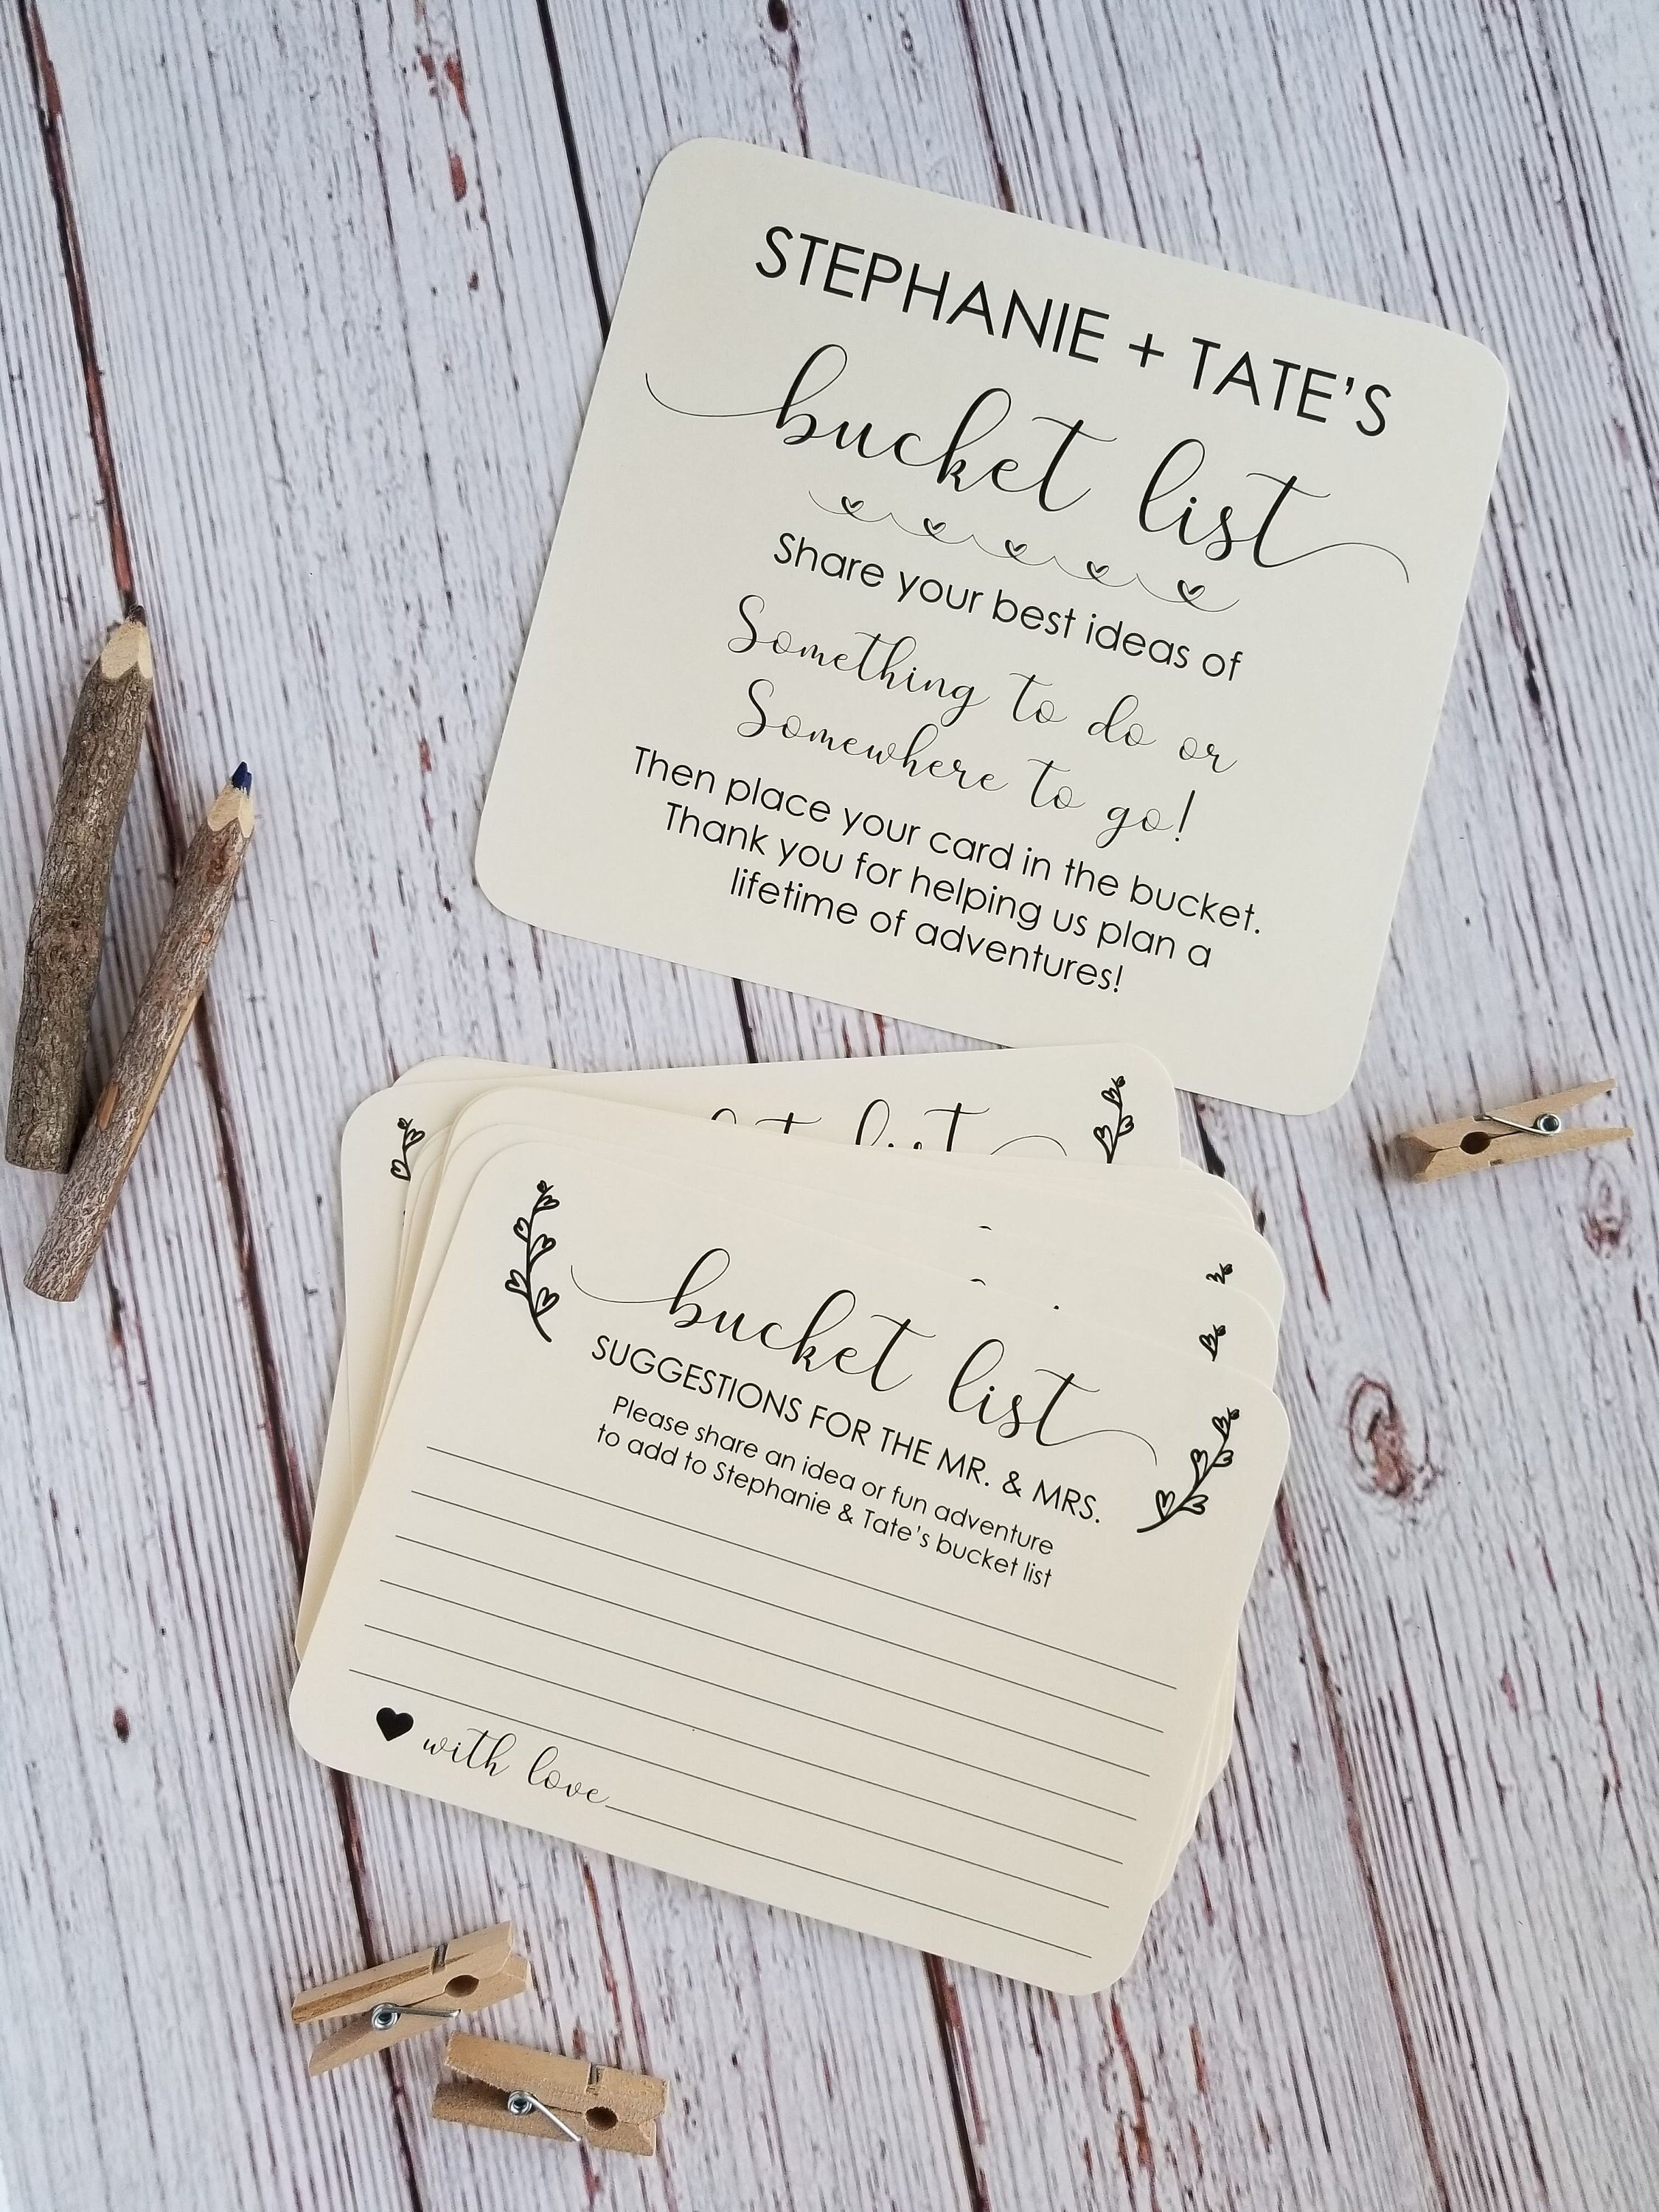 STEPHANIE + TATE'S
bucket list
Share your best ideas of
Something to do or
Somewhere to go!
Then place your card in the bucket.
Thank you for helping us plan a
lifetime of adventures!
bucket list
SUGGESTIONS FOR THE MR. & MRS.
Please share an idea or fun adventure
to add to Stephanie & Tate's bucket list
with love